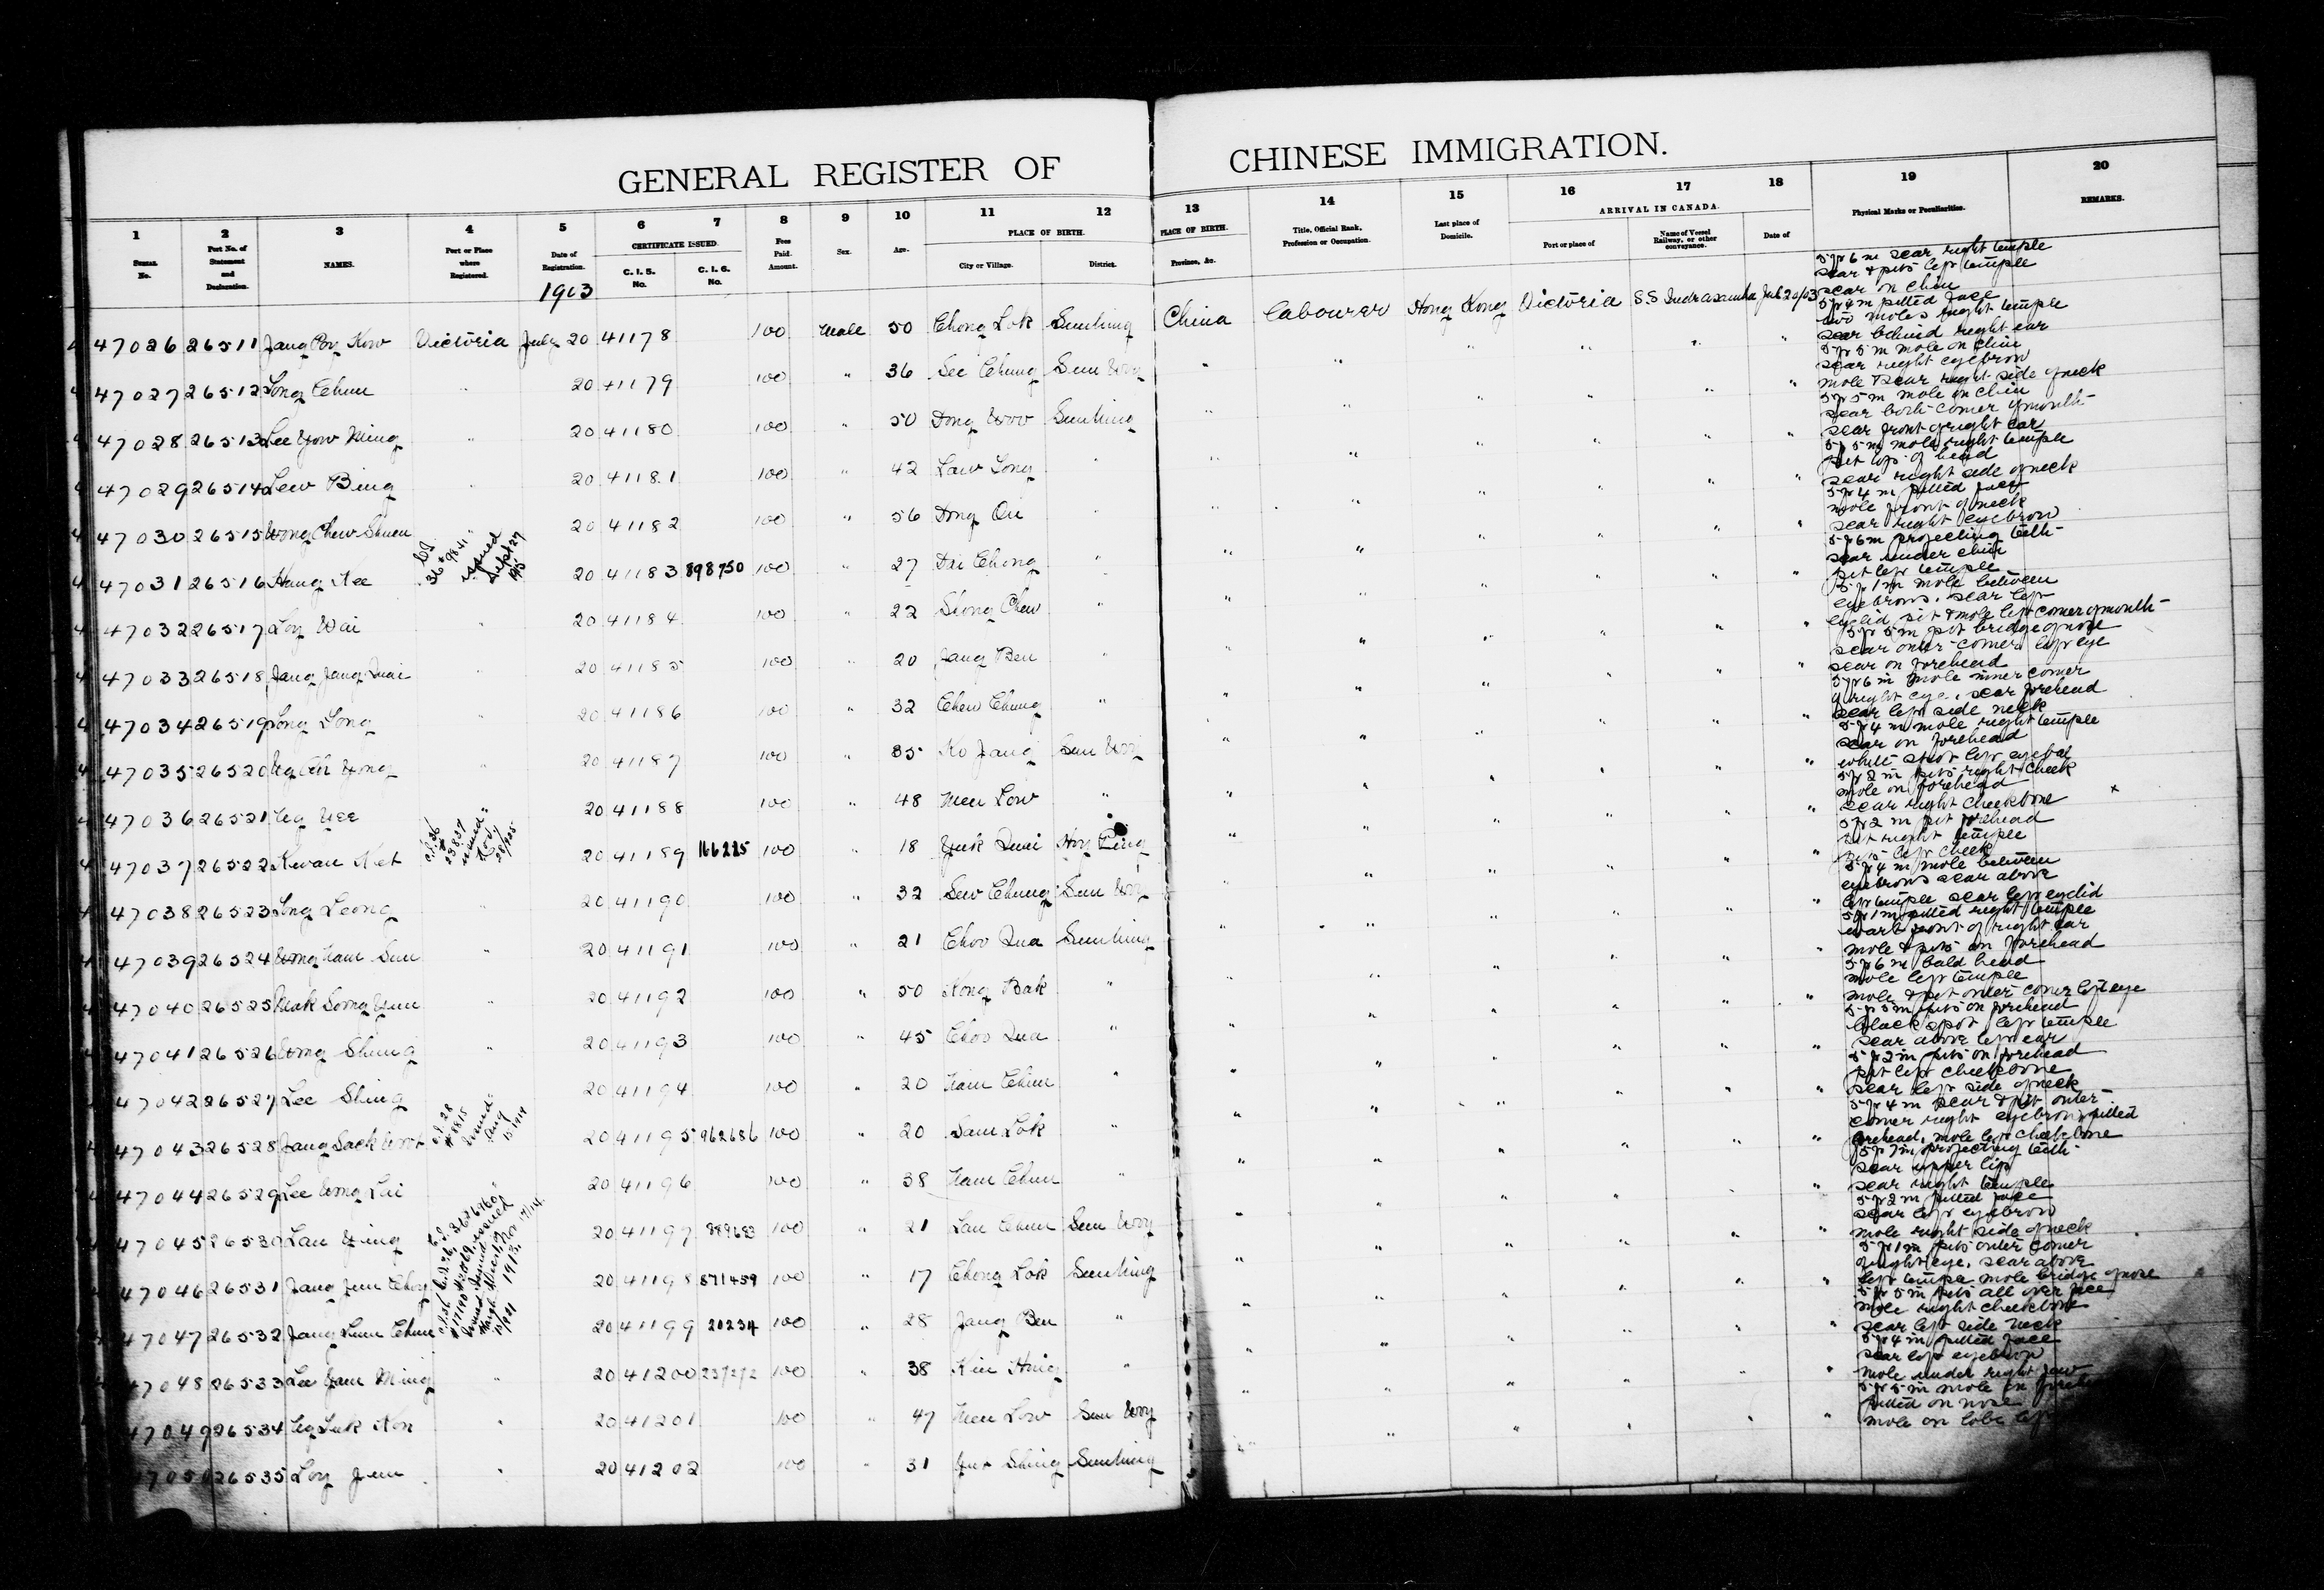 GENERAL REGISTER OF CHINESE IMMIGRATION.
1 2 3 4 5 6 7 8 9 10 11 12 13 14 15 16 17 18 19 20
SERIAL No. Port No. of Statement and Declaration. NAMES. Port or Place where Registered. Date of Registration. CERTIFICATE ISSUED. C. I. 5. No. C. I. 6. No. Fees Paid. Amount. Sex. Age. PLACE OF BIRTH. City or Village. District. PLACE OF BIRTH. Province, &c. Title, Official Rank, Profession or Occupation. Last place of Domicile. ARRIVAL IN CANADA. Port or place of Name of Vessel Railway, or other conveyance. Date of Physical Marks or Peculiarities. REMARKS.
1903
47026 26511 Victoria July 20 41178 100 Male 50 Chong Lok Sunning China Labourer Hong Kong Victoria S.S. Indrasamha July 20/03 5 ft 6 in scar right temple
scar & pits left temple
scar on chin
47027 26512 Long Chun " 20 41179 100 " 36 See Chung Sun Woy " " " " " " 5 ft 4 in pitted face
two moles right temple
scar behind right ear
47028 26513 Lee Yow Ming " 20 41180 100 " 50 Dong Woo Sunning " " " " " " 5 ft 5 in mole on chin
scar right eyebrow
mole & scar right side of neck
47029 26514 Lew Bing " 20 41181 100 " 42 Law Long " " " " " " " 5 ft 5 in mole on chin
scar both corner of mouth
scar front of right ear
47030 26515 Wong Chew Shuen 20 41182 100 " 56 Dong Oii " " " " " " " 5 ft 5 in mole right temple
pit top of head
scar right side of neck
47031 26516 Hang Kee issued Sept 27 20 41183 898750 100 " 27 Dai Chong " " " " " " " 5 ft 4 in pitted face
mole front of neck
scar right eyebrow
47032 26517 Loy Wai " 20 41184 100 " 22 Shong Chew " " " " " " " 5 ft 6 in projecting teeth
scar under chin
pit left temple
47033 26518 Jang Jang Quai " 20 41185 100 " 20 Jang Ben " " " " " " " 5 ft 1 in mole between
eyebrows, scar left
eyelid, pit & mole left corner of mouth
47034 26519 Long Long " 20 41186 100 " 32 Chew Chung " " " " " " " 5 ft 5 in pit bridge of nose
scar outer corner left eye
scar on forehead
47035 26520 " 20 41187 100 " 35 Ko Jang Sun Woy " " " " " " 5 ft 6 in mole inner corner
of right eye, scar forehead
scar left side neck
47036 26521 Ng Yee 20 41188 100 " 48 Men Low " " " " " " " 5 ft 4 in mole right temple
scar on forehead
white spot left eyeball
47037 26522 Kwan Ket issued Nov. 20 41189 166225 100 " 18 Yuk Quai Hoy Ping " " " " " " 5 ft 2 in pits right cheek
mole on forehead
scar right cheekbone
47038 26523 Leong " 20 41190 100 " 32 Sew Chung Sun Woy " " " " " " 5 ft 2 in pit forehead
pit right temple
pits left cheek
47039 26524 Wong Nam Sun " 20 41191 100 " 21 Choo Qua Sunning " " " " " " 5 ft 4 in mole between
eyebrows scar above
left temple scar left eyelid
47040 26525 " 20 41192 100 " 50 Kong Bak " " " " " " " 5 ft 1 in pitted right temple
wart front of right ear
mole & pits on forehead
47041 26526 Wong Shung " 20 41193 100 " 45 Choo Qua " " " " " " " 5 ft 6 in bald head
mole left temple
mole & pit outer corner left eye
47042 26527 Lee Shing 20 41194 100 " 20 Nam Chun " " " " " " " 5 ft 5 in pits on forehead
black spot left temple
scar above left ear
47043 26528 Jang Sack 20 41195 962686 100 " 20 Sam Lok " " " " " " " 5 ft 2 in pits on forehead
pit left cheekbone
scar left side of neck
47044 26529 Lee Wong Lai 20 41196 100 " 38 Nam Chun " " " " " " " 5 ft 4 in scar & pit outer
corner right eyebrow, pitted
forehead, mole left cheekbone
47045 26530 Lau 20 41197 889683 100 " 21 Lau Chun Sun Woy " " " " " " 5 ft 7 in projecting teeth
scar upper lip
scar right temple
47046 26531 Jang Jun Choy 20 41198 871459 100 " 17 Chong Lok Sunning " " " " " " 5 ft 2 in pitted face
scar left eyebrow
mole right side of neck
47047 26532 Jang Lum Chun 20 41199 20234 100 " 28 Jang Ben " " " " " " " 5 ft 1 in pits outer corner
of right eye, scar above
left temple mole bridge of nose
47048 26533 Lee Yam Ming " 20 41200 237272 100 " 38 Kin Hing " " " " " " " 5 ft 5 in pits all over face
mole right cheekbone
scar left side neck
47049 26534 " 20 41201 100 " 47 Men Low Sun Woy " " " " " " 5 ft 4 in pitted face
scar left eyebrow
mole under right jaw
47050 26535 Loy Jun " 20 41202 100 " 31 Sunning " " " " " " 5 ft 5 in mole on
pitted on nose
mole on lobe